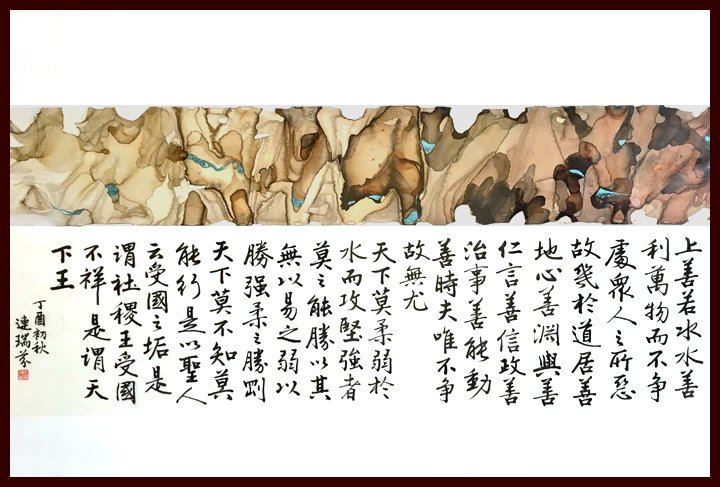 上善若水水善
利萬物而不争
處衆人之所惡
故幾於道居善
地心善淵與善
仁言善信政善
治事善能動
善時夫唯不争
故無尤
天下莫柔弱於
水而攻堅強者
莫之能勝以其
無以易之弱以
勝强柔之勝剛
天下莫不知莫
能行是以聖人
云受國之垢是
謂社稷主受國
不祥是謂天
下王
丁酉初秋
連瑞芬